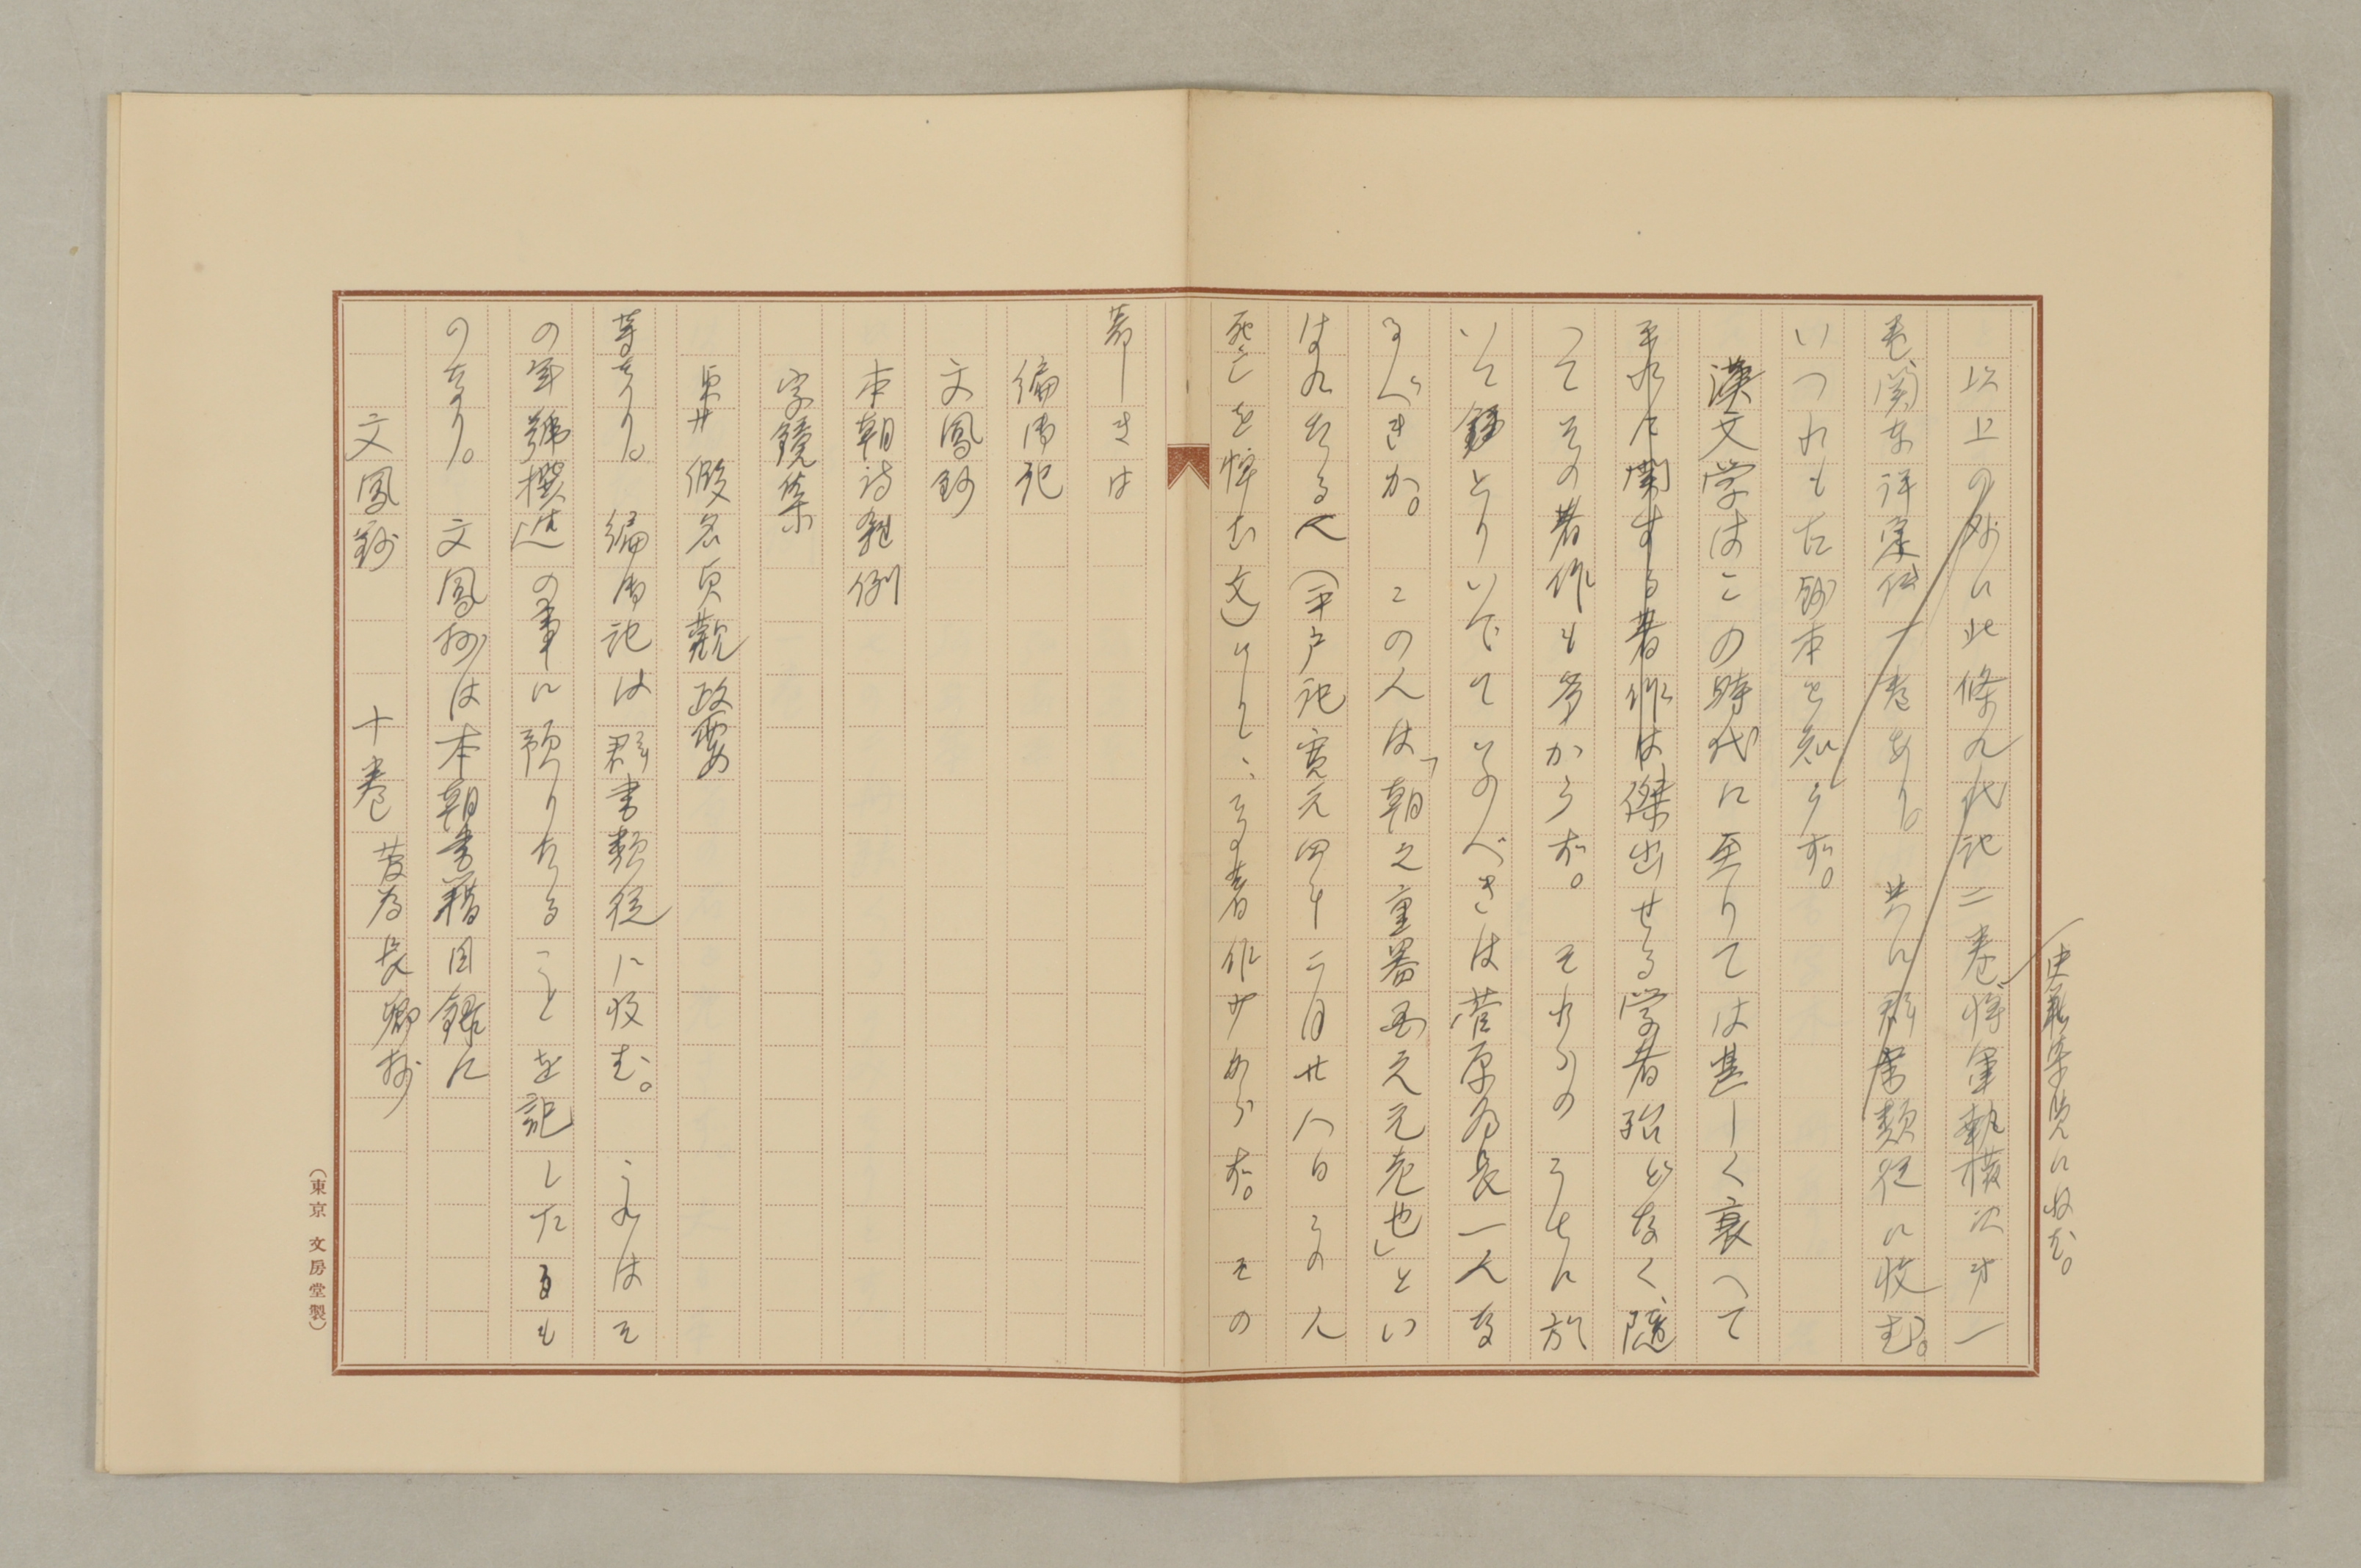 史籍集覧に收む。
以上の外に北條九代記二巻、将軍執權次第一
巻、関東評定伝一巻あり。共に群書類従に收む。
いつれも古鈔本を知らず。
漢文学はこの時代に至りては甚しく衰へて
それに関する著作は傑出せる学者殆どなく、隨
つてその著作も多からず。それらのうちに於
いて録とりいでていふべきは菅原為長一人な
るべきか。この人は「朝之重器国之元老也」とい
はれたる人(平戸記寛元四年二月廿八日この人
死亡を悼む文)なり、その著作少からず。その
著しきは
編御記
文鳳鈔
本朝詩韻例
字鏡集
仮名貞觀政要
等なり。編御記は群書類従に收む。これはそ
の年號撰進の事に預りたることを記したるも
のなり。文鳳抄は本朝書籍目録に
文鳳鈔 十巻 菅為長卿抄
(東京 文房堂製)